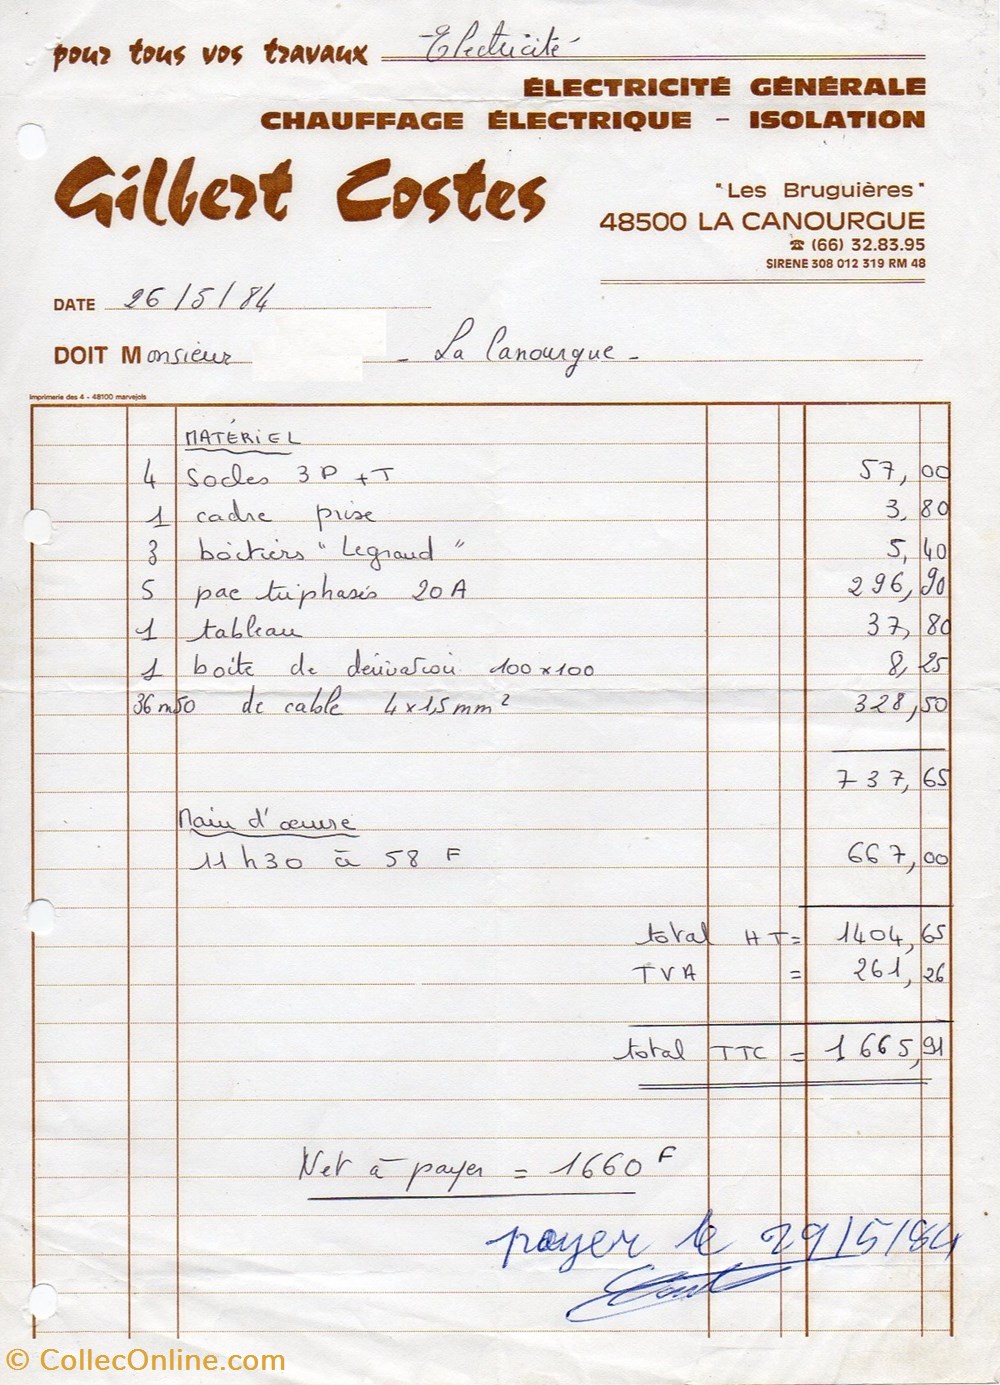 pour tous vos travaux Electricité
ÉLECTRICITÉ GÉNÉRALE
CHAUFFAGE ÉLECTRIQUE - ISOLATION
Gilbert Costes
"Les Bruguières"
48500 LA CANOURGUE
☎ (66) 32.83.95
SIRENE 308 012 319 RM 48
DATE 26/5/84
DOIT Monsieur - La Canourgue -
Imprimerie des 4 - 48100 marvejols
MATÉRIEL
4 Socles 3P+T 57,00
1 cadre prise 3,80
3 boîtiers "Legrand" 5,40
5 pac triphasés 20A 296,90
1 tableau 37,80
1 boite de dérivation 100x100 8,25
36m50 de cable 4x1,5mm² 328,50
737,65
Main d'œuvre
11h30 à 58 F 667,00
total HT= 1404,65
TVA = 261,26
total TTC = 1665,91
Net à payer = 1660 F
payer le 29/5/84
© CollecOnline.com